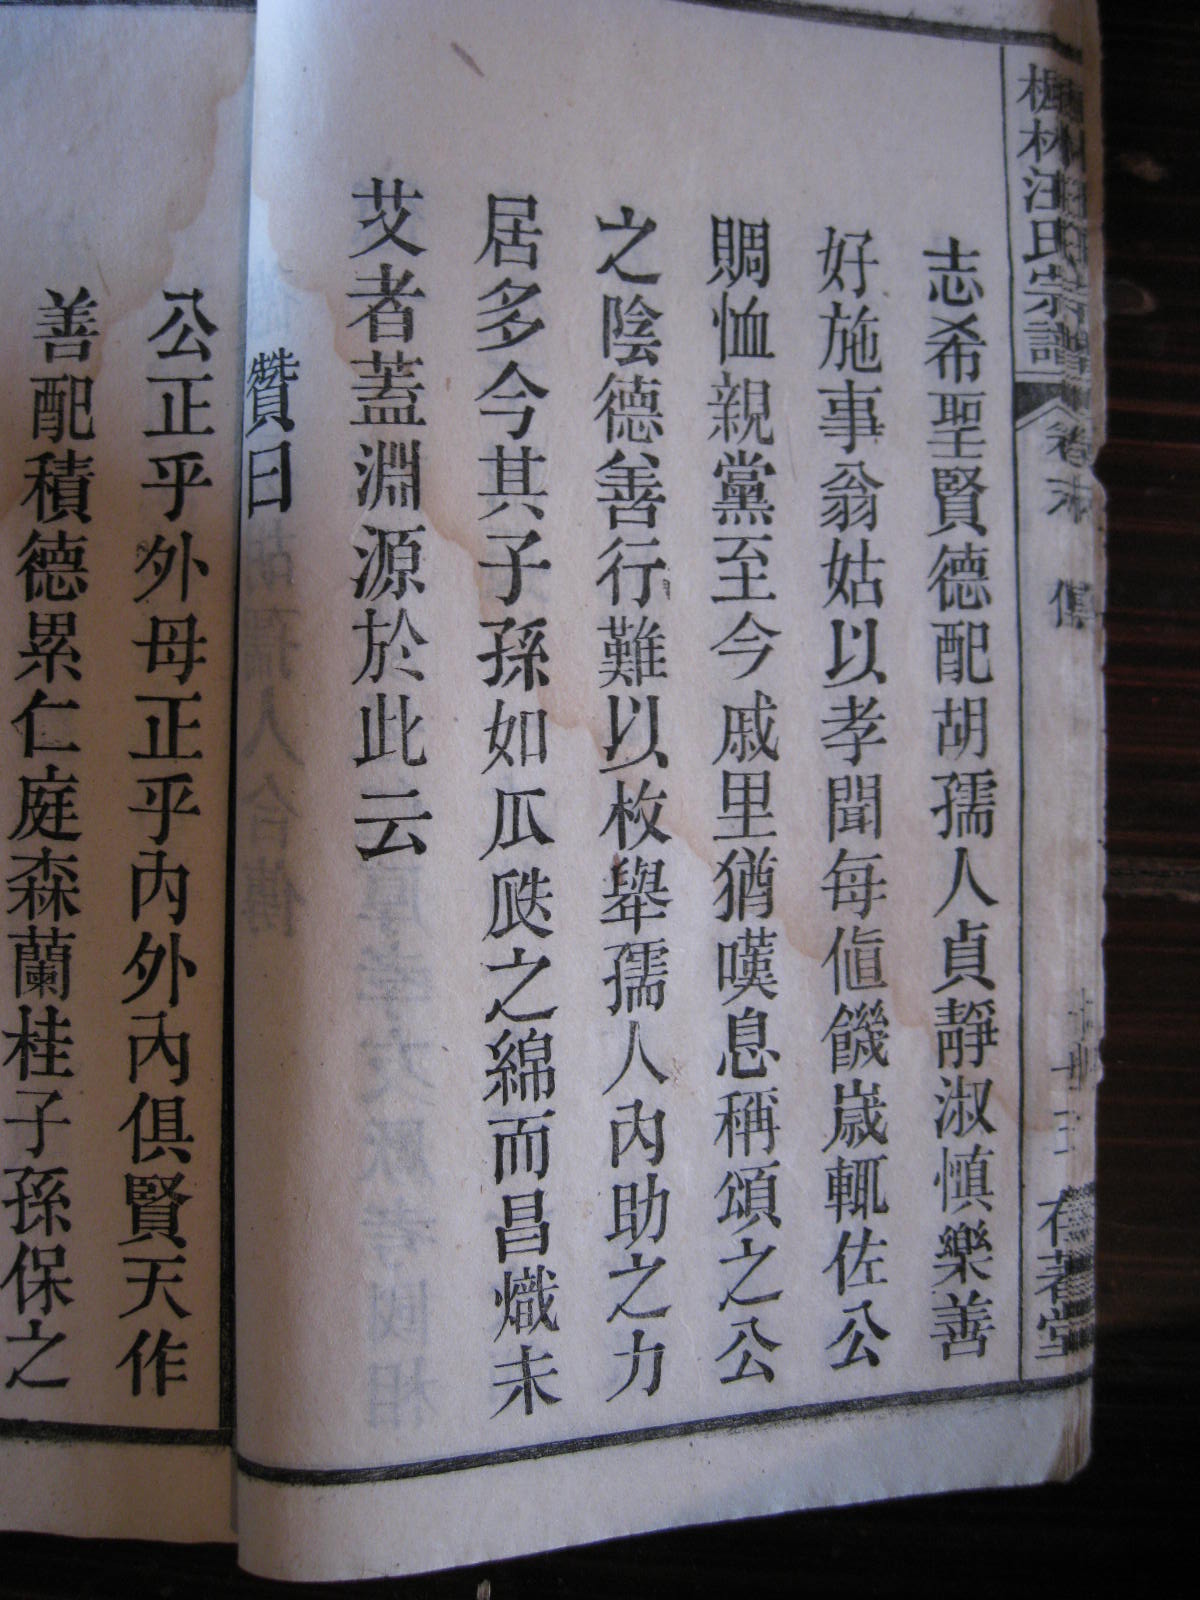 楓林汪氏宗譜 卷末 傳 存著堂
志希聖賢德配胡孺人貞靜淑慎樂善
好施事翁姑以孝聞每值饑歲輒佐公
賙恤親黨至今戚里猶嘆息稱頌之公
之陰德善行難以枚舉孺人內助之力
居多今其子孫如瓜瓞之綿而昌熾未
艾者蓋淵源於此云
贊曰
公正乎外母正乎內外內俱賢天作
善配積德累仁庭森蘭桂子孫保之